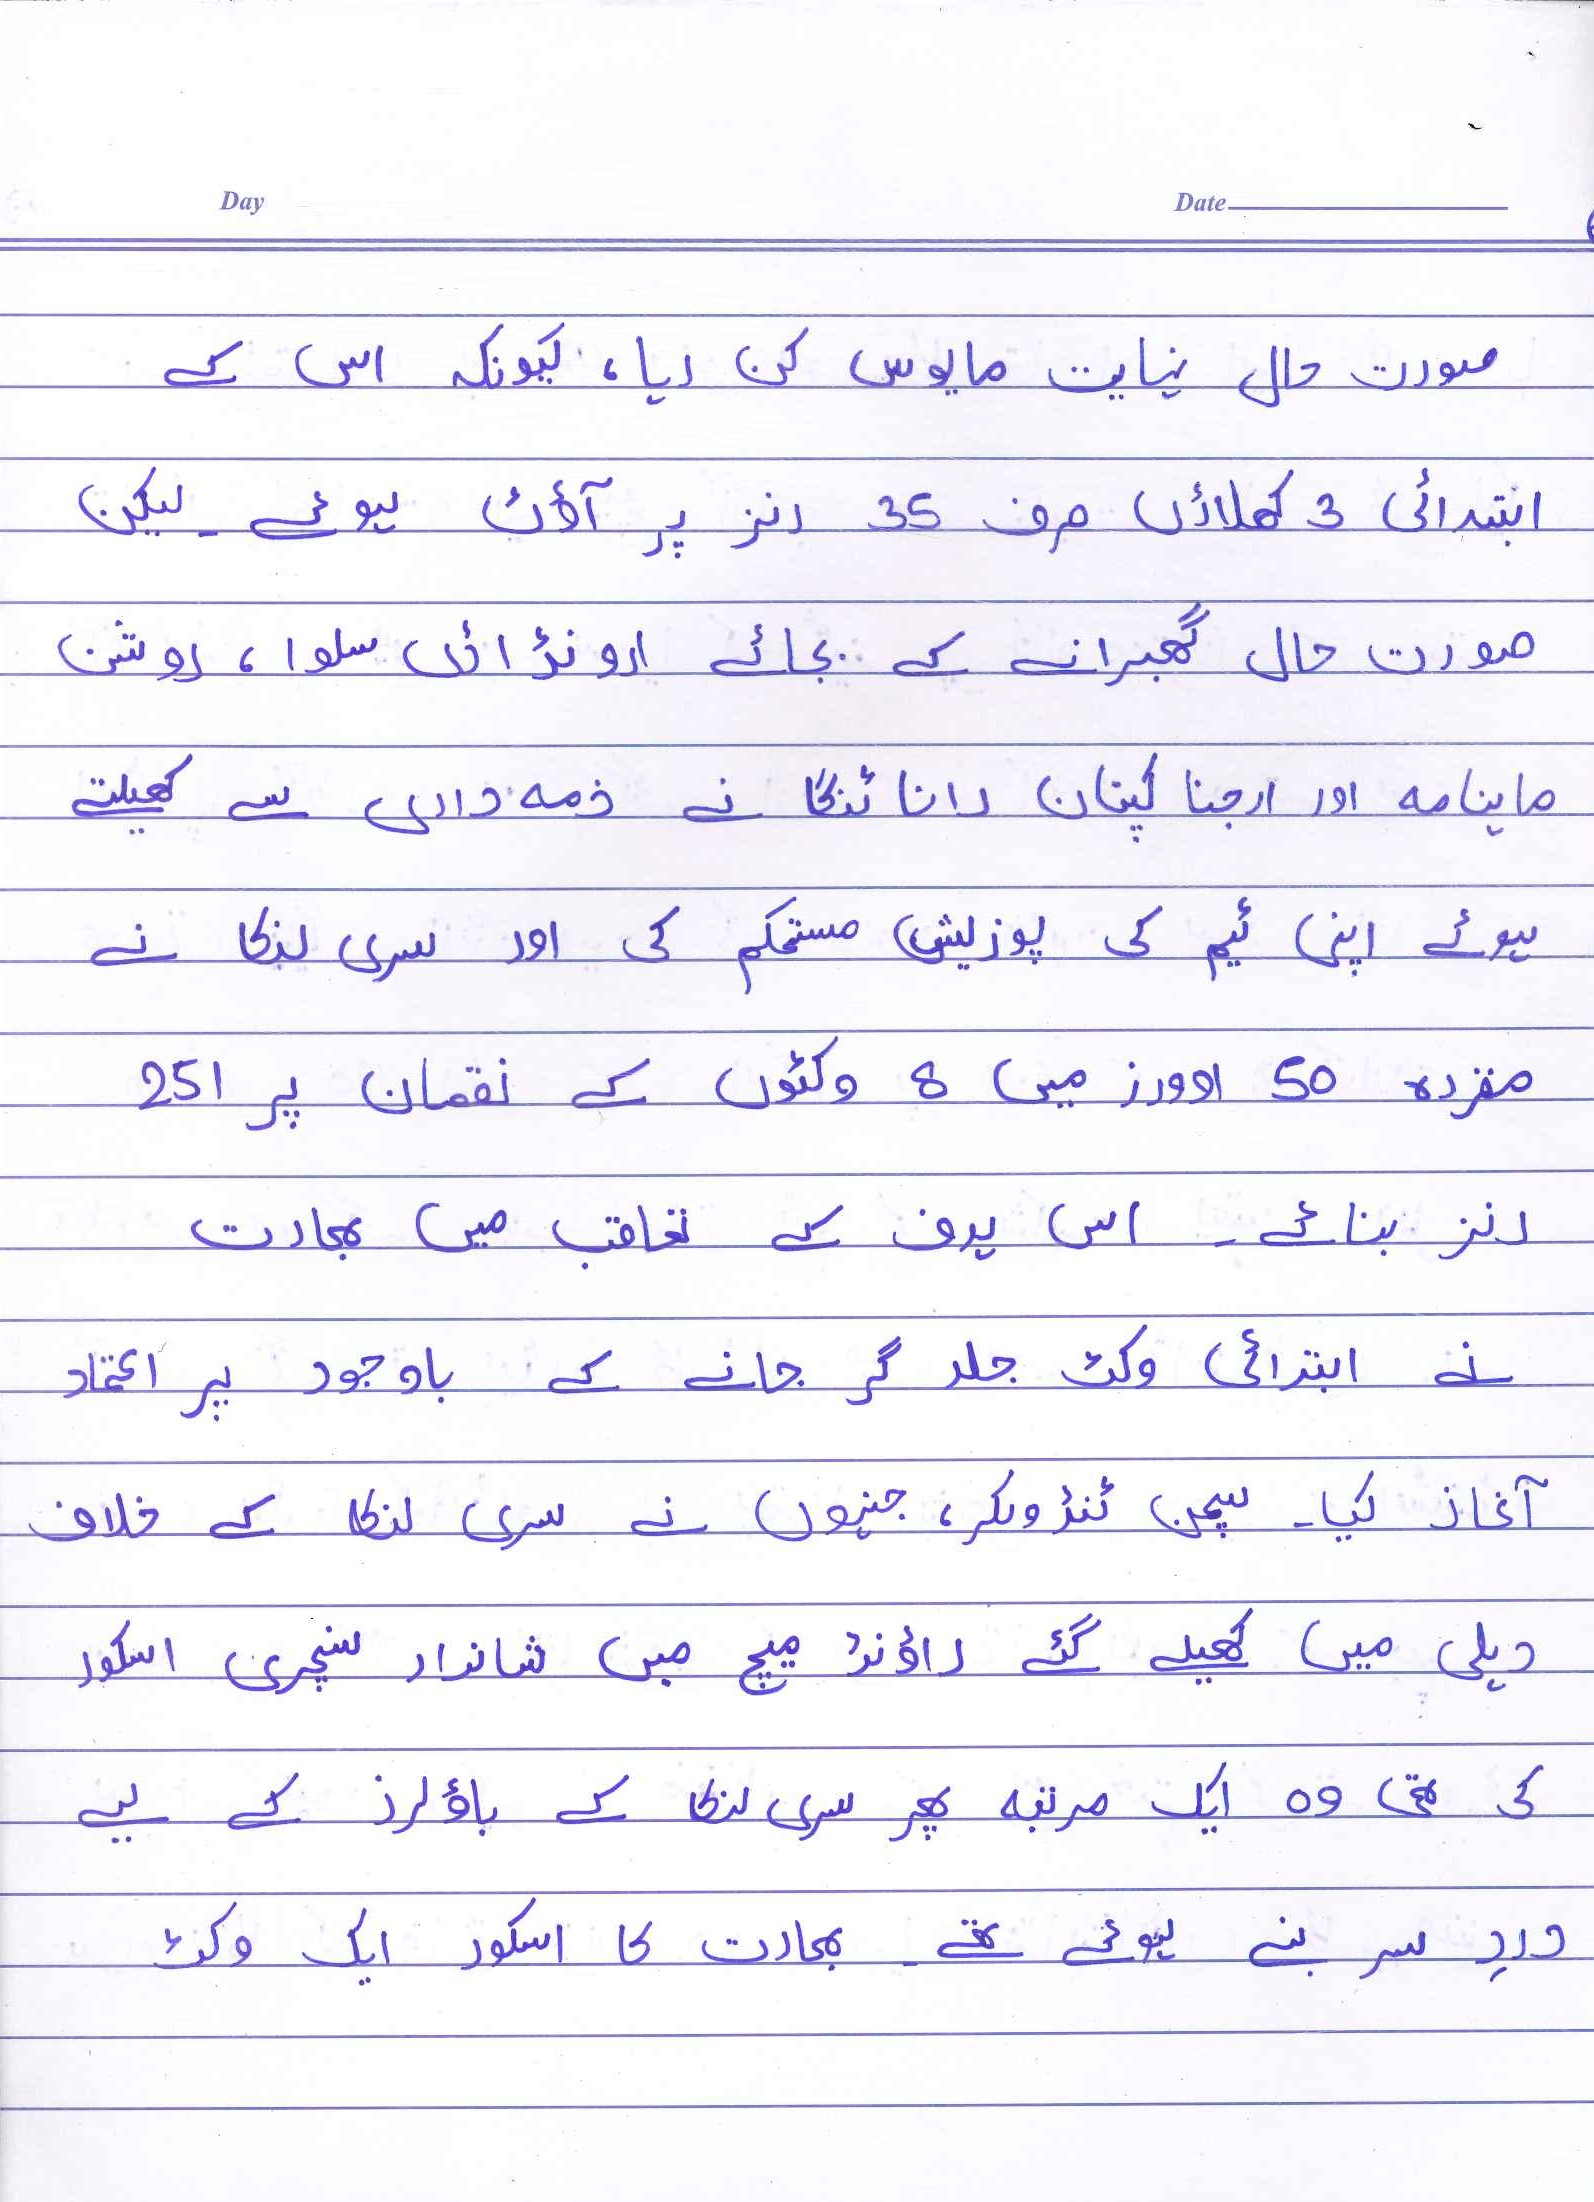 Day Date
صورت حال نہایت مایوس کن رہا، کیونکہ اس کے
ابتدائی 3 کھلاڑی صرف 35 رنز پر آؤٹ ہوئے ۔ لیکن
صورت حال گھبرانے کے بجائے اروندا ئی سلوا، روشن
ماہنامہ اور ارجنا کپتان رانا ٹنگا نے ذمہ داری سے کھیلتے
ہوئے اپنی ٹیم کی پوزیشن مستحکم کی اور سری لنکا نے
مقررہ 50 اوورز میں 8 وکٹوں کے نقصان پر 251
رنز بنائے ۔ اس ہدف کے تعاقب میں بھارت
نے ابتدائی وکٹ جلد گر جانے کے باوجود پر اعتماد
آغاز کیا۔ سچن ٹنڈولکر، جنہوں نے سری لنکا کے خلاف
دہلی میں کھیلے گئے راؤنڈ میچ میں شاندار سنچری اسکور
کی تھی وہ ایک مرتبہ پھر سری لنکا کے باؤلرز کے لیے
دردِ سر بنے ہوئے تھے۔ بھارت کا اسکور ایک وکٹ